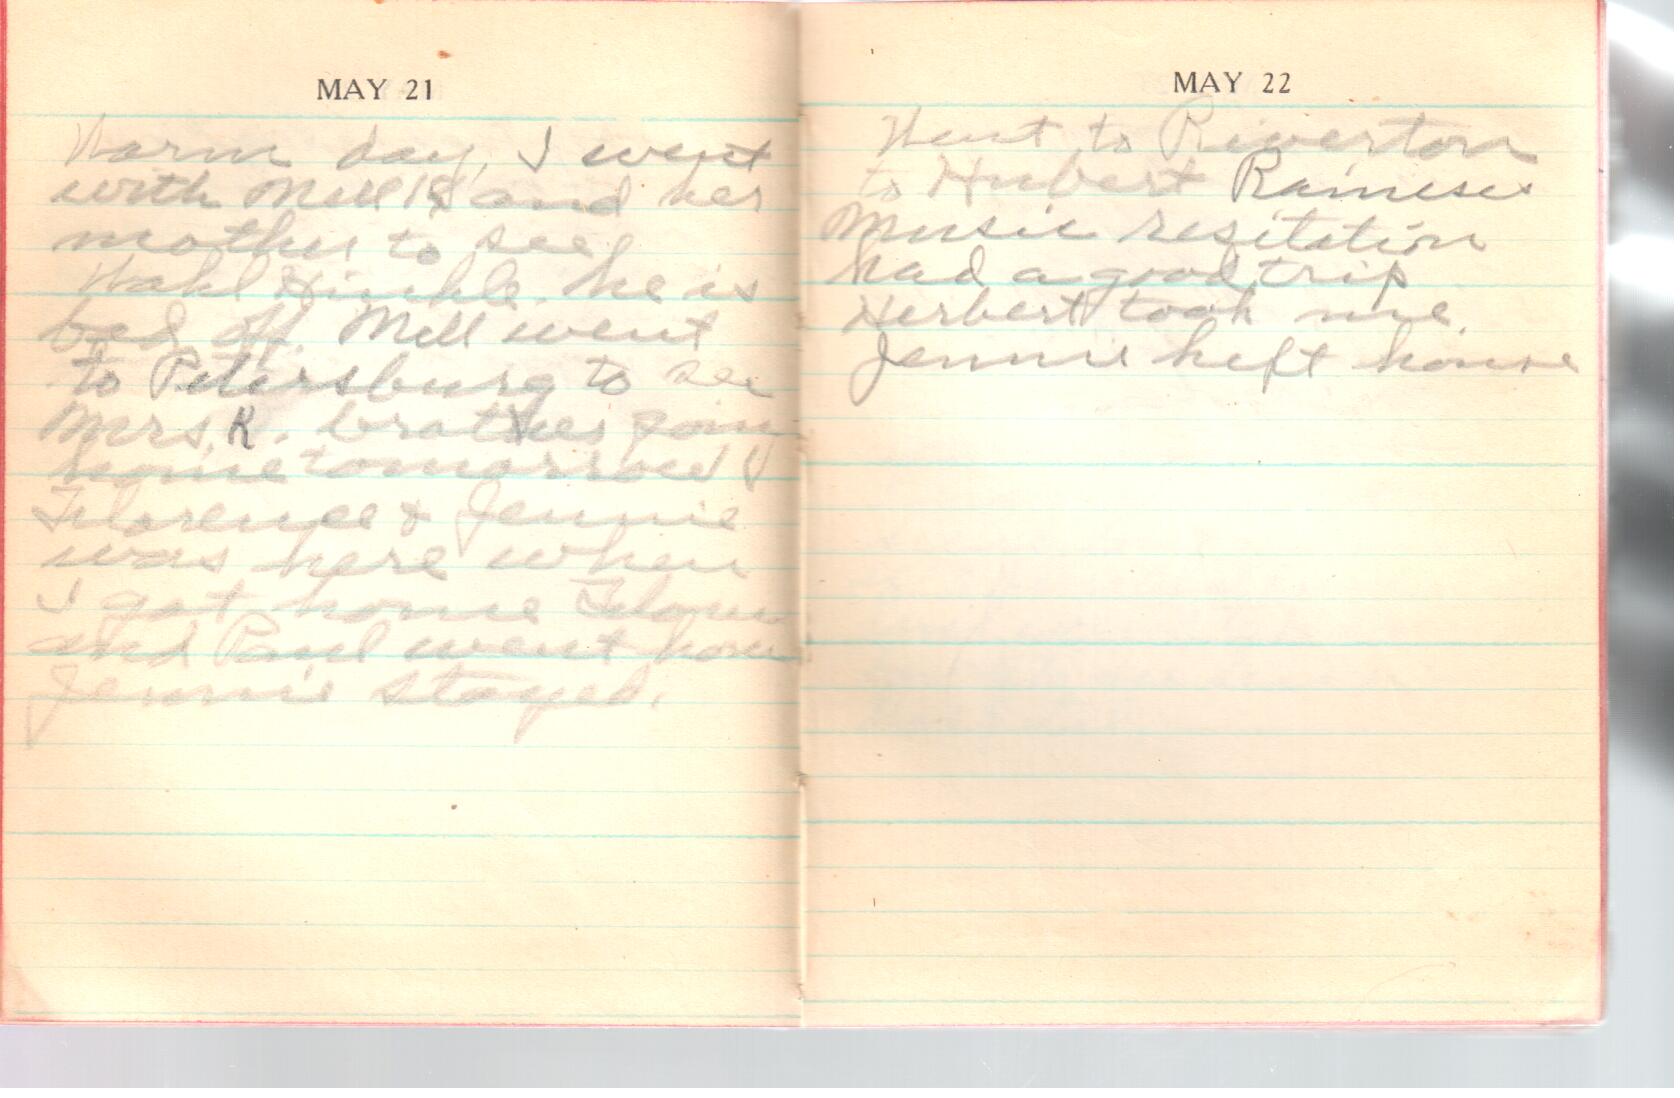 MAY 21
Warm day, I went
with Mell K and her
mother to see
Wahl Hinkle. he is
bad off. Mell went
to Petersburg to see
Mrs. K. brother going
home tomorrow
Florence & Jennie
was here when
I got home Floren
and Paul went hom
Jennie stayed.
MAY 22
Went to Riverton
to Hubert Raineses
Music resitation
had a good trip
Herbert took me.
Jennie keft house